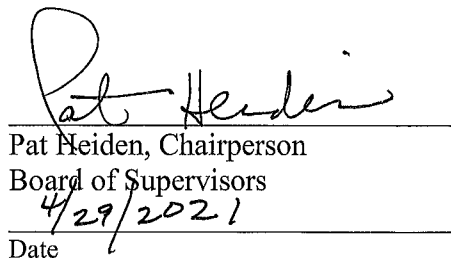 Pat Heiden
Pat Heiden, Chairperson
Board of Supervisors
4/29/2021
Date